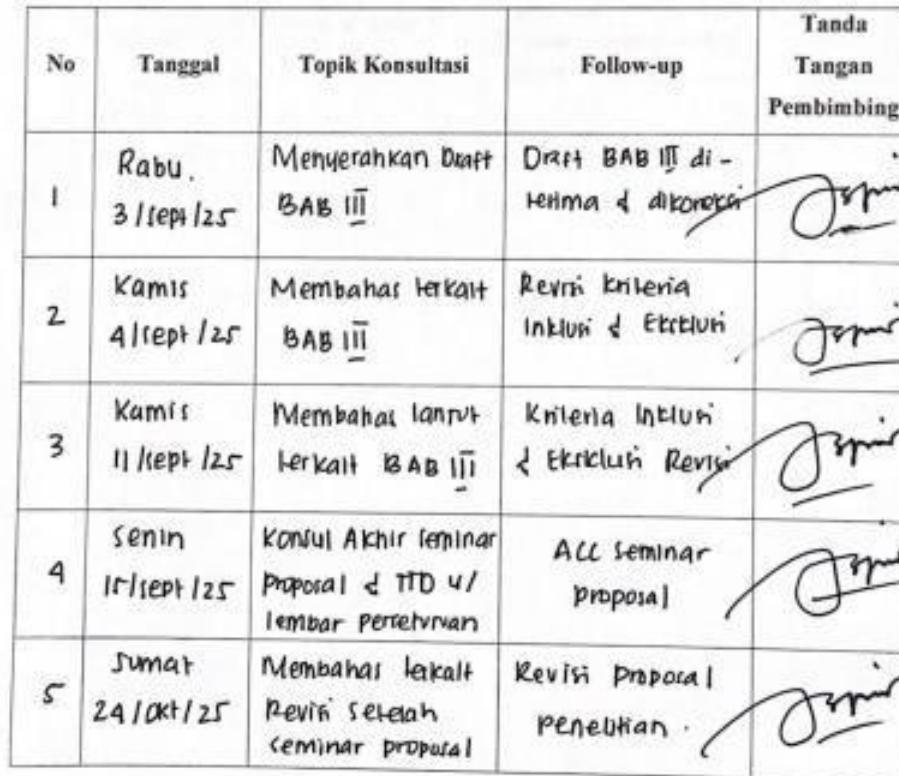 No
Tanggal
Topik Konsultasi
Follow-up
Tanda
Tangan
Pembimbing
1
Rabu.
3/Sept/25
Menyerahkan Draft
BAB III
Draft BAB III di-
terima & dikoreksi
2
Kamis
4/Sept/25
Membahas terkait
BAB III
Revisi kriteria
Inklusi & Eksklusi
3
Kamis
11/Sept/25
Membahas lanjut
terkait BAB III
Kriteria Inklusi
& Eksklusi Revisi
4
Senin
15/Sept/25
Konsul Akhir Seminar
Proposal & TTD u/
lembar persetujuan
ACC Seminar
Proposal
5
Jumat
24/Okt/25
Membahas terkait
Revisi Setelah
Seminar proposal
Revisi Proposal
Penelitian.